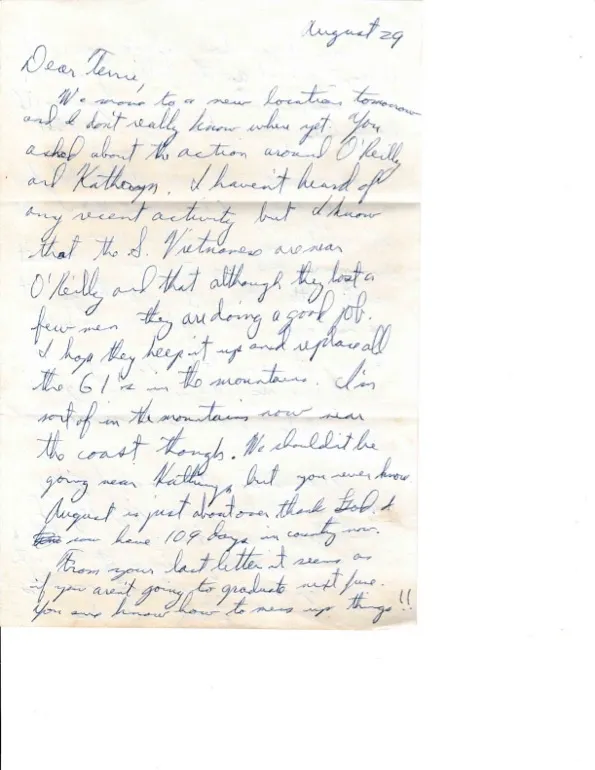 August 29
Dear Terrie,
We move to a new location tomorrow
and I don't really know where yet. You
asked about the action around O'Reilly
and Katheryn. I haven't heard of
any recent activity but I know
that the S. Vietnamese are near
O'Reilly and that although they lost a
few men they are doing a good job.
I hope they keep it up and replace all
the GI's in the mountains. I'm
sort of in the mountains now near
the coast though. We shouldn't be
going near Kathryn, but you never know.
August is just about over thank God. I
now have 109 days in country now.
From your last letter it seems as
if you aren't going to graduate next June.
You sure know how to mess up things!!